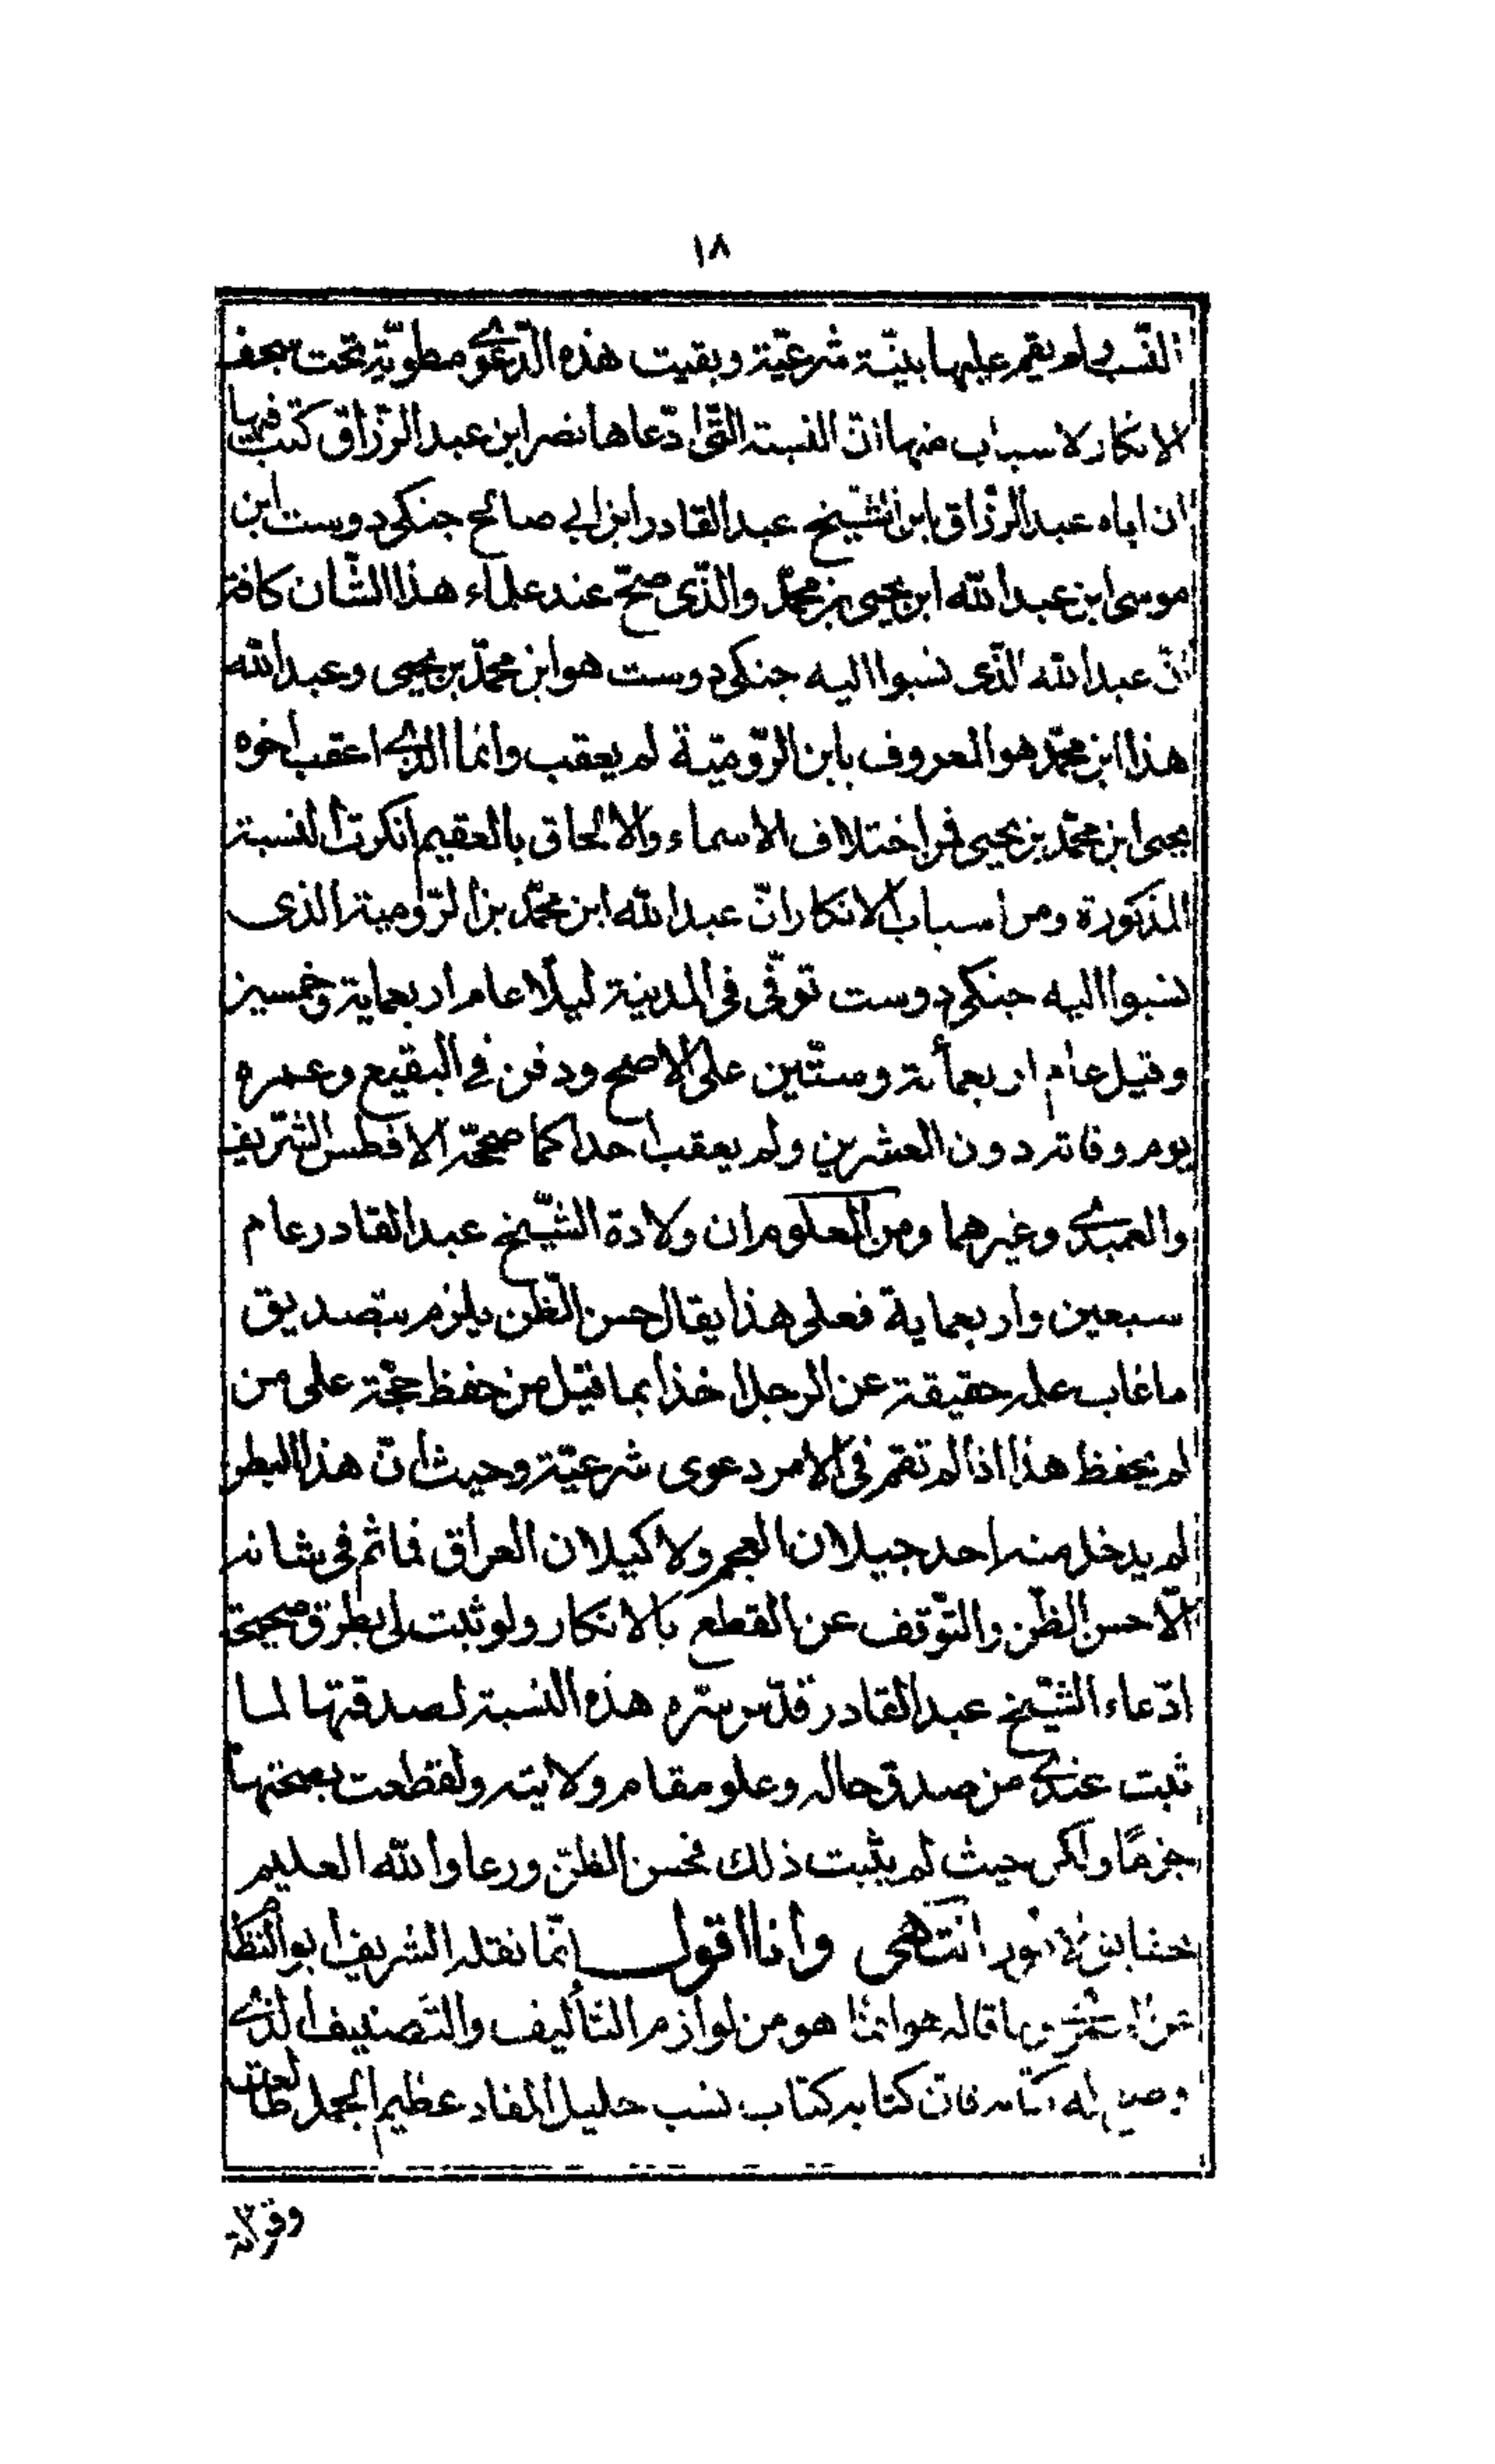 ١٨
النسب ولم يقم عليها بينة شرعية وبقيت هذه الدعوى مطوية تحت سجف
الانكار لاسباب منها ان النسبة التي ادعاها نصر ابن عبد الرزاق كتب فيها
ان اباه عبد الرزاق ابن الشيخ عبد القادر ابن ابي صالح جنكي دوست ابن
موسى ابن عبد الله ابن يحيى بن محمد والذى صح عند علماء هذا الشان كافة
ان عبد الله الذى نسبوا اليه جنكى دوست هو ابن محمد بن يحيى وعبد الله
هذا ابن محمد هو المعروف بابن الرومية لم يعقب وانما الذى اعقب اخوه
يحيى ابن محمد بن يحيى فمن اختلاف الاسماء والالحاق بالعقيم انكرت النسبة
المذكورة ومن اسباب الانكار ان عبد الله ابن محمد بن الرومية الذى
نسبوا اليه جنكى دوست توفى فى المدينة ليلا عام اربعماية وخمسين
وقيل عام اربعمأئة وستين على الاصح ودفن في البقيع وعمره
يوم وفاته دون العشرين ولم يعقب احدا كما صححه الافطس الشريف
والعمرى وغيرهما ومن المعلوم ان ولادة الشيخ عبد القادر عام
سبعين واربعماية فعلى هذا يقال حسن الظن يلزم بتصديق
ما غاب علم حقيقته عن الرجل اخذا بما قيل من حفظ حجة على من
لم يحفظ هذا اذا لم تقم فى الامر دعوى شرعية وحيث ان هذا البطن
لم يدخل منه احد جيلان العجم ولا كيلان العراق فما ثم فى شانه
الّا حسن الظن والتوقف عن القطع بالانكار ولو ثبت لى بطرق صحيحة
ادعاء الشيخ عبد القادر قدس سره هذه النسبة لصدقتها لما
ثبت عندى من صدق حاله وعلو مقام ولايته ولقطعت بصحتها
جزمًا ولكن حيث لم يثبت ذلك فحسن الظن ورعا والله العليم
بخفايا الامور انتهى وانا اقول انما نقله الشريف ابو النظام
وما قاله هو انما هو من لوازم التأليف والتصنيف الذى
كتابه فان كتابه كتاب نسب جليل المفاد عظيم